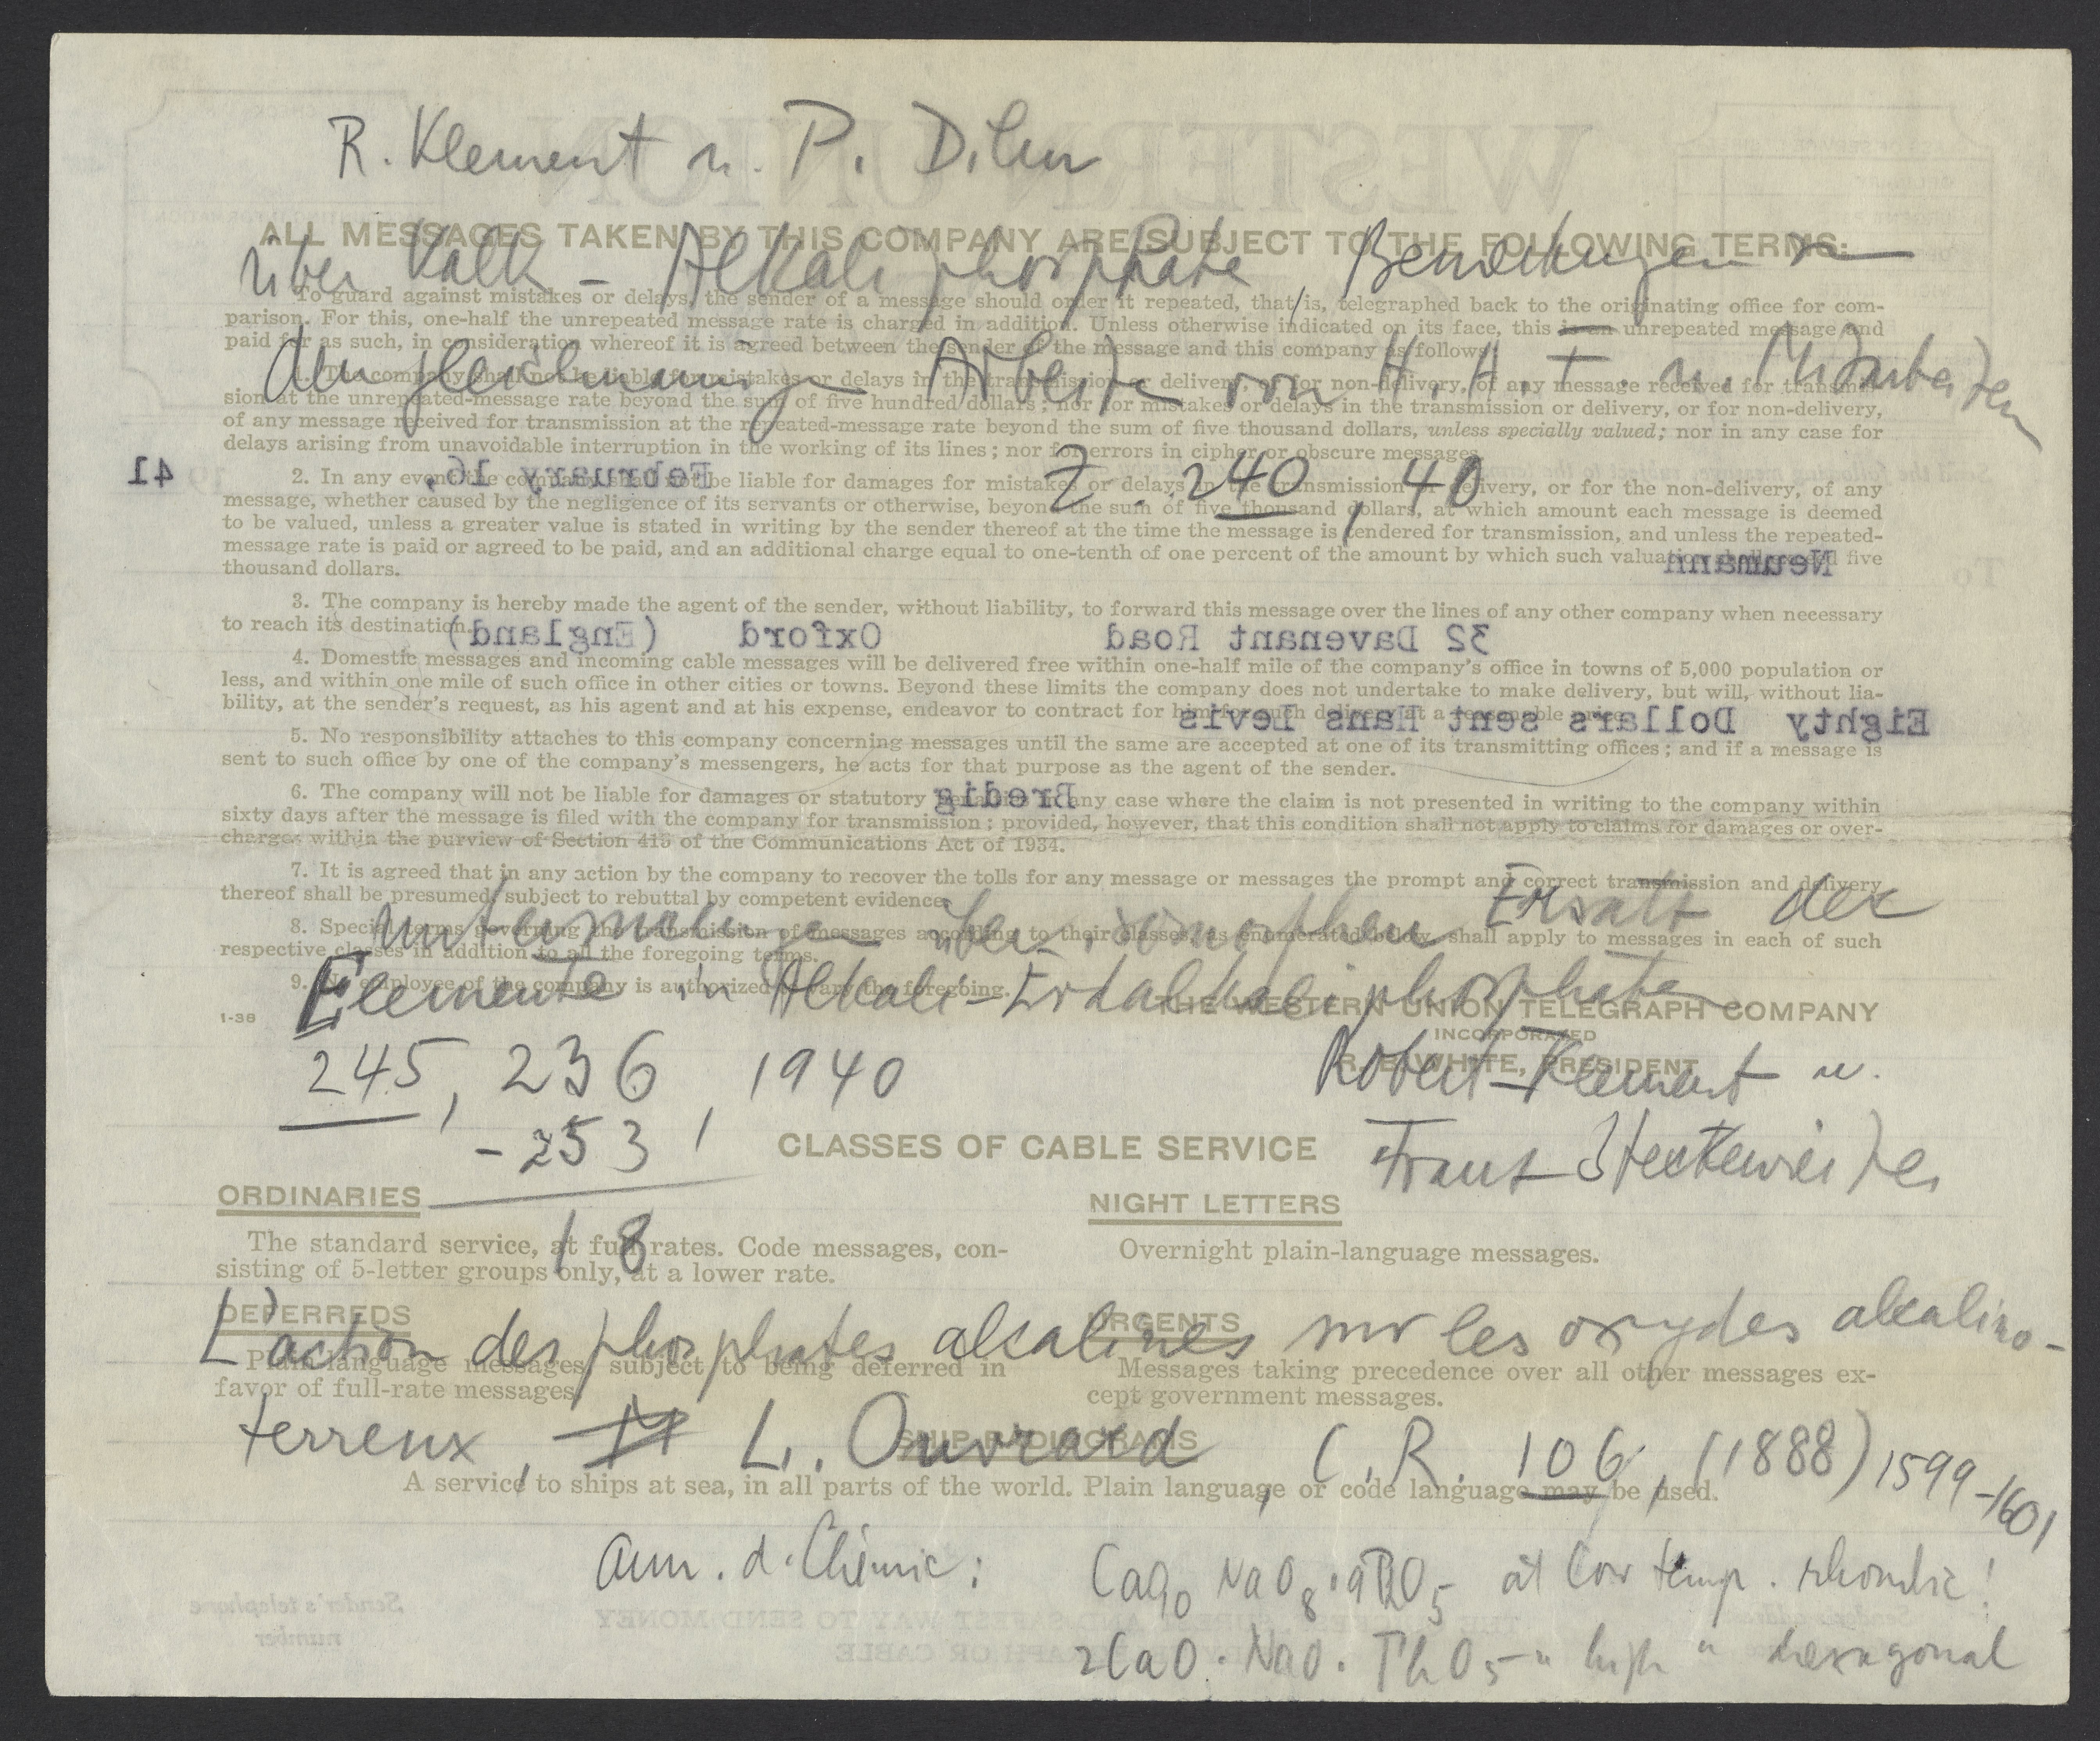 R. Klement u. P. Dihn
ALL MESSAGES TAKEN BY THIS COMPANY ARE SUBJECT TO THE FOLLOWING TERMS:
über Kalk - Alkaliphosphate, Bemerkungen zu
To guard against mistakes or delays, the sender of a message should order it repeated, that is, telegraphed back to the originating office for com-
parison. For this, one-half the unrepeated message rate is charged in addition. Unless otherwise indicated on its face, this is an unrepeated message and
paid for as such, in consideration whereof it is agreed between the sender of the message and this company as follows:
den gleichnamigen Arbeiten von H. H. F. u. Mitarbeitern
1. The company shall not be liable for mistakes or delays in the transmission or delivery, or for non-delivery, of any message received for transmis-
sion at the unrepeated-message rate beyond the sum of five hundred dollars; nor for mistakes or delays in the transmission or delivery, or for non-delivery,
of any message received for transmission at the repeated-message rate beyond the sum of five thousand dollars, unless specially valued; nor in any case for
delays arising from unavoidable interruption in the working of its lines; nor for errors in cipher or obscure messages.
Z. 240, 40
February 16, 41
2. In any event the company shall not be liable for damages for mistakes or delays in the transmission or delivery, or for the non-delivery, of any
message, whether caused by the negligence of its servants or otherwise, beyond the sum of five thousand dollars, at which amount each message is deemed
to be valued, unless a greater value is stated in writing by the sender thereof at the time the message is tendered for transmission, and unless the repeated-
message rate is paid or agreed to be paid, and an additional charge equal to one-tenth of one percent of the amount by which such valuation shall exceed five
thousand dollars.
Neumann
3. The company is hereby made the agent of the sender, without liability, to forward this message over the lines of any other company when necessary
to reach its destination.
32 Davenant Road Oxford (England)
4. Domestic messages and incoming cable messages will be delivered free within one-half mile of the company's office in towns of 5,000 population or
less, and within one mile of such office in other cities or towns. Beyond these limits the company does not undertake to make delivery, but will, without lia-
bility, at the sender's request, as his agent and at his expense, endeavor to contract for him for such delivery at a reasonable price.
Eighty Dollars sent Hans Levis
5. No responsibility attaches to this company concerning messages until the same are accepted at one of its transmitting offices; and if a message is
sent to such office by one of the company's messengers, he acts for that purpose as the agent of the sender.
6. The company will not be liable for damages or statutory penalties in any case where the claim is not presented in writing to the company within
Bredig
sixty days after the message is filed with the company for transmission; provided, however, that this condition shall not apply to claims for damages or over-
charges within the purview of Section 415 of the Communications Act of 1934.
7. It is agreed that in any action by the company to recover the tolls for any message or messages the prompt and correct transmission and delivery
thereof shall be presumed, subject to rebuttal by competent evidence.
Untersuchungen über isomorphen Ersatz der
8. Special terms governing the transmission of messages according to their classes, as enumerated below, shall apply to messages in each of such
respective classes in addition to all the foregoing terms.
Elemente in Alkali-Erdalkaliphosphaten
9. No employee of the company is authorized to vary the foregoing.
THE WESTERN UNION TELEGRAPH COMPANY
1-38
INCORPORATED
R. B. WHITE, PRESIDENT
245, 236 - 253, 1940
Robert Klement u.
Franz Steckenreiter
18
CLASSES OF CABLE SERVICE
ORDINARIES
The standard service, at full rates. Code messages, con-
sisting of 5-letter groups only, at a lower rate.
NIGHT LETTERS
Overnight plain-language messages.
DEFERREDS
Plain-language messages, subject to being deferred in
favor of full-rate messages.
URGENTS
Messages taking precedence over all other messages ex-
cept government messages.
L'action des phosphates alcalines sur les oxydes alcalino-
terreux, L. Ouvrard, C. R. 106, (1888) 1599-1601
SHIP RADIOGRAMS
A service to ships at sea, in all parts of the world. Plain language or code language may be used.
Ann. d. Chimie: at low temp. rhombic!
2CaO. NaO. PhO5 " high " hexagonal
WESTERN UNION
Sender's telephone
number
THE QUICKEST, SUREST AND SAFEST WAY TO SEND MONEY
IS BY TELEGRAPH OR CABLE